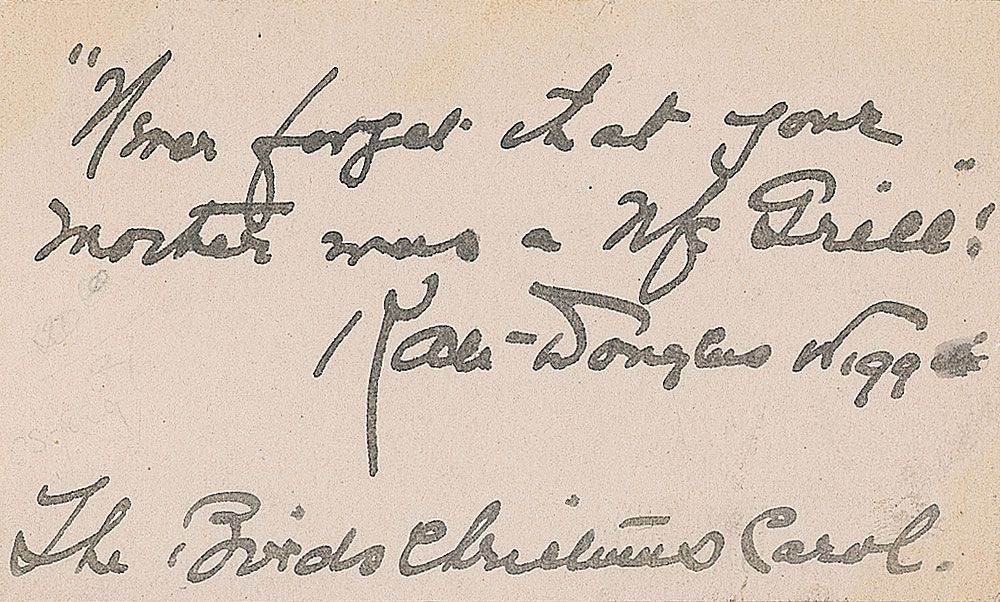 "Never forget that your
mother was a Mc Grill"!
Kate Douglas Wiggin
The Birds Christmas Carol.